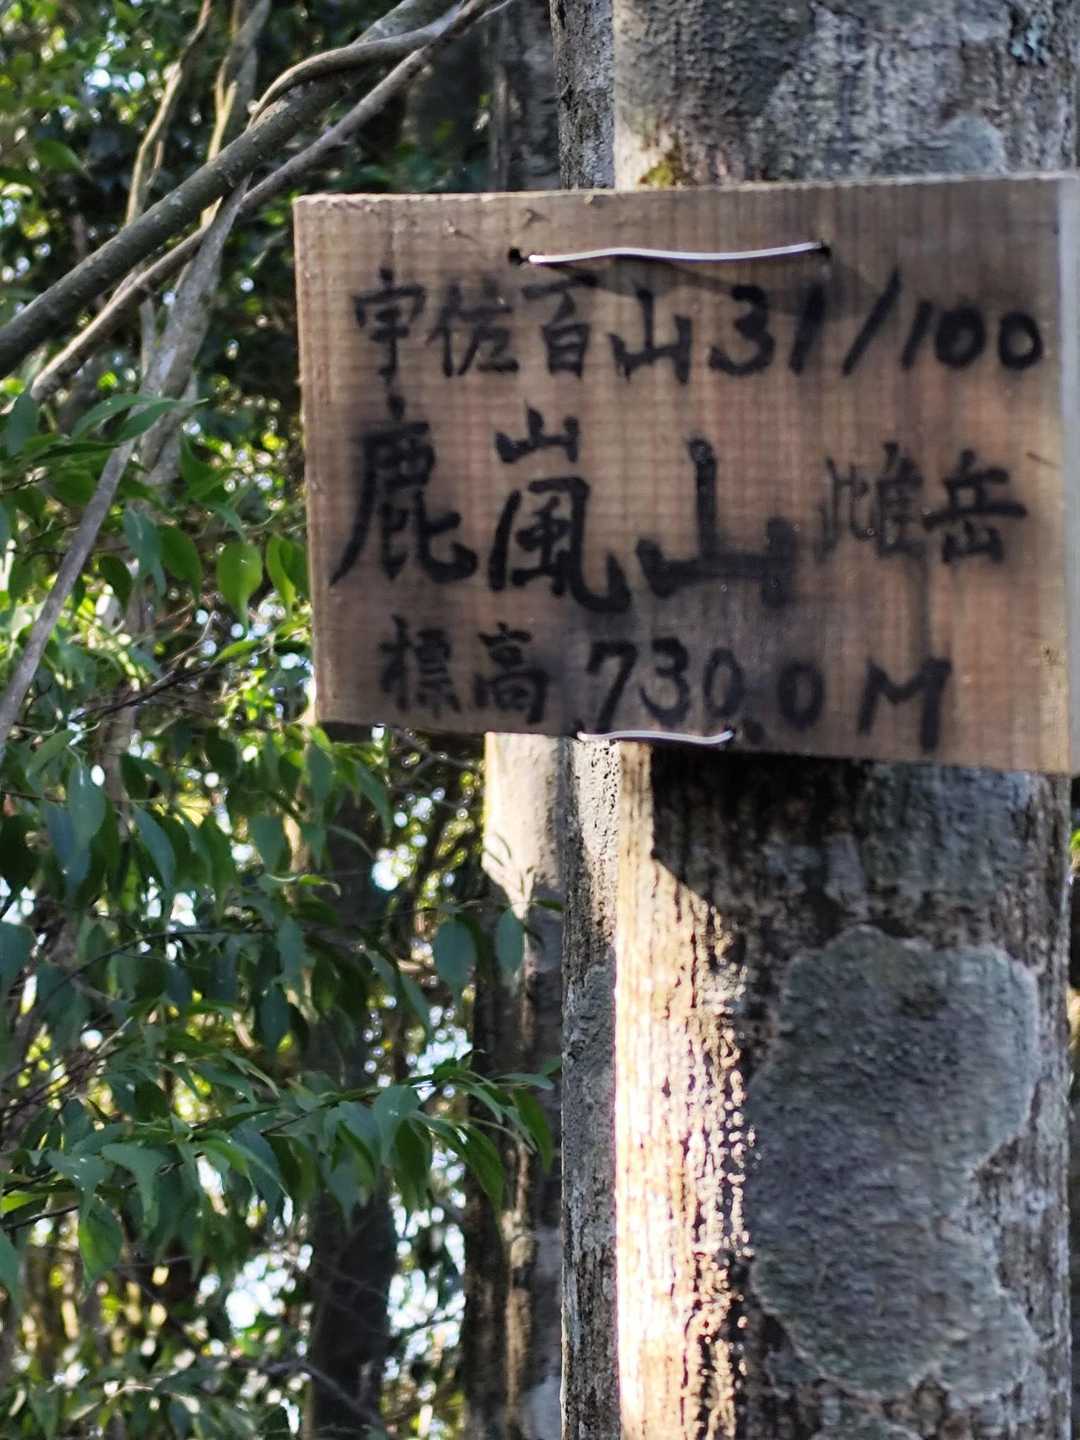 宇佐百山 31/100
鹿嵐山 雌岳
標高 730.0M